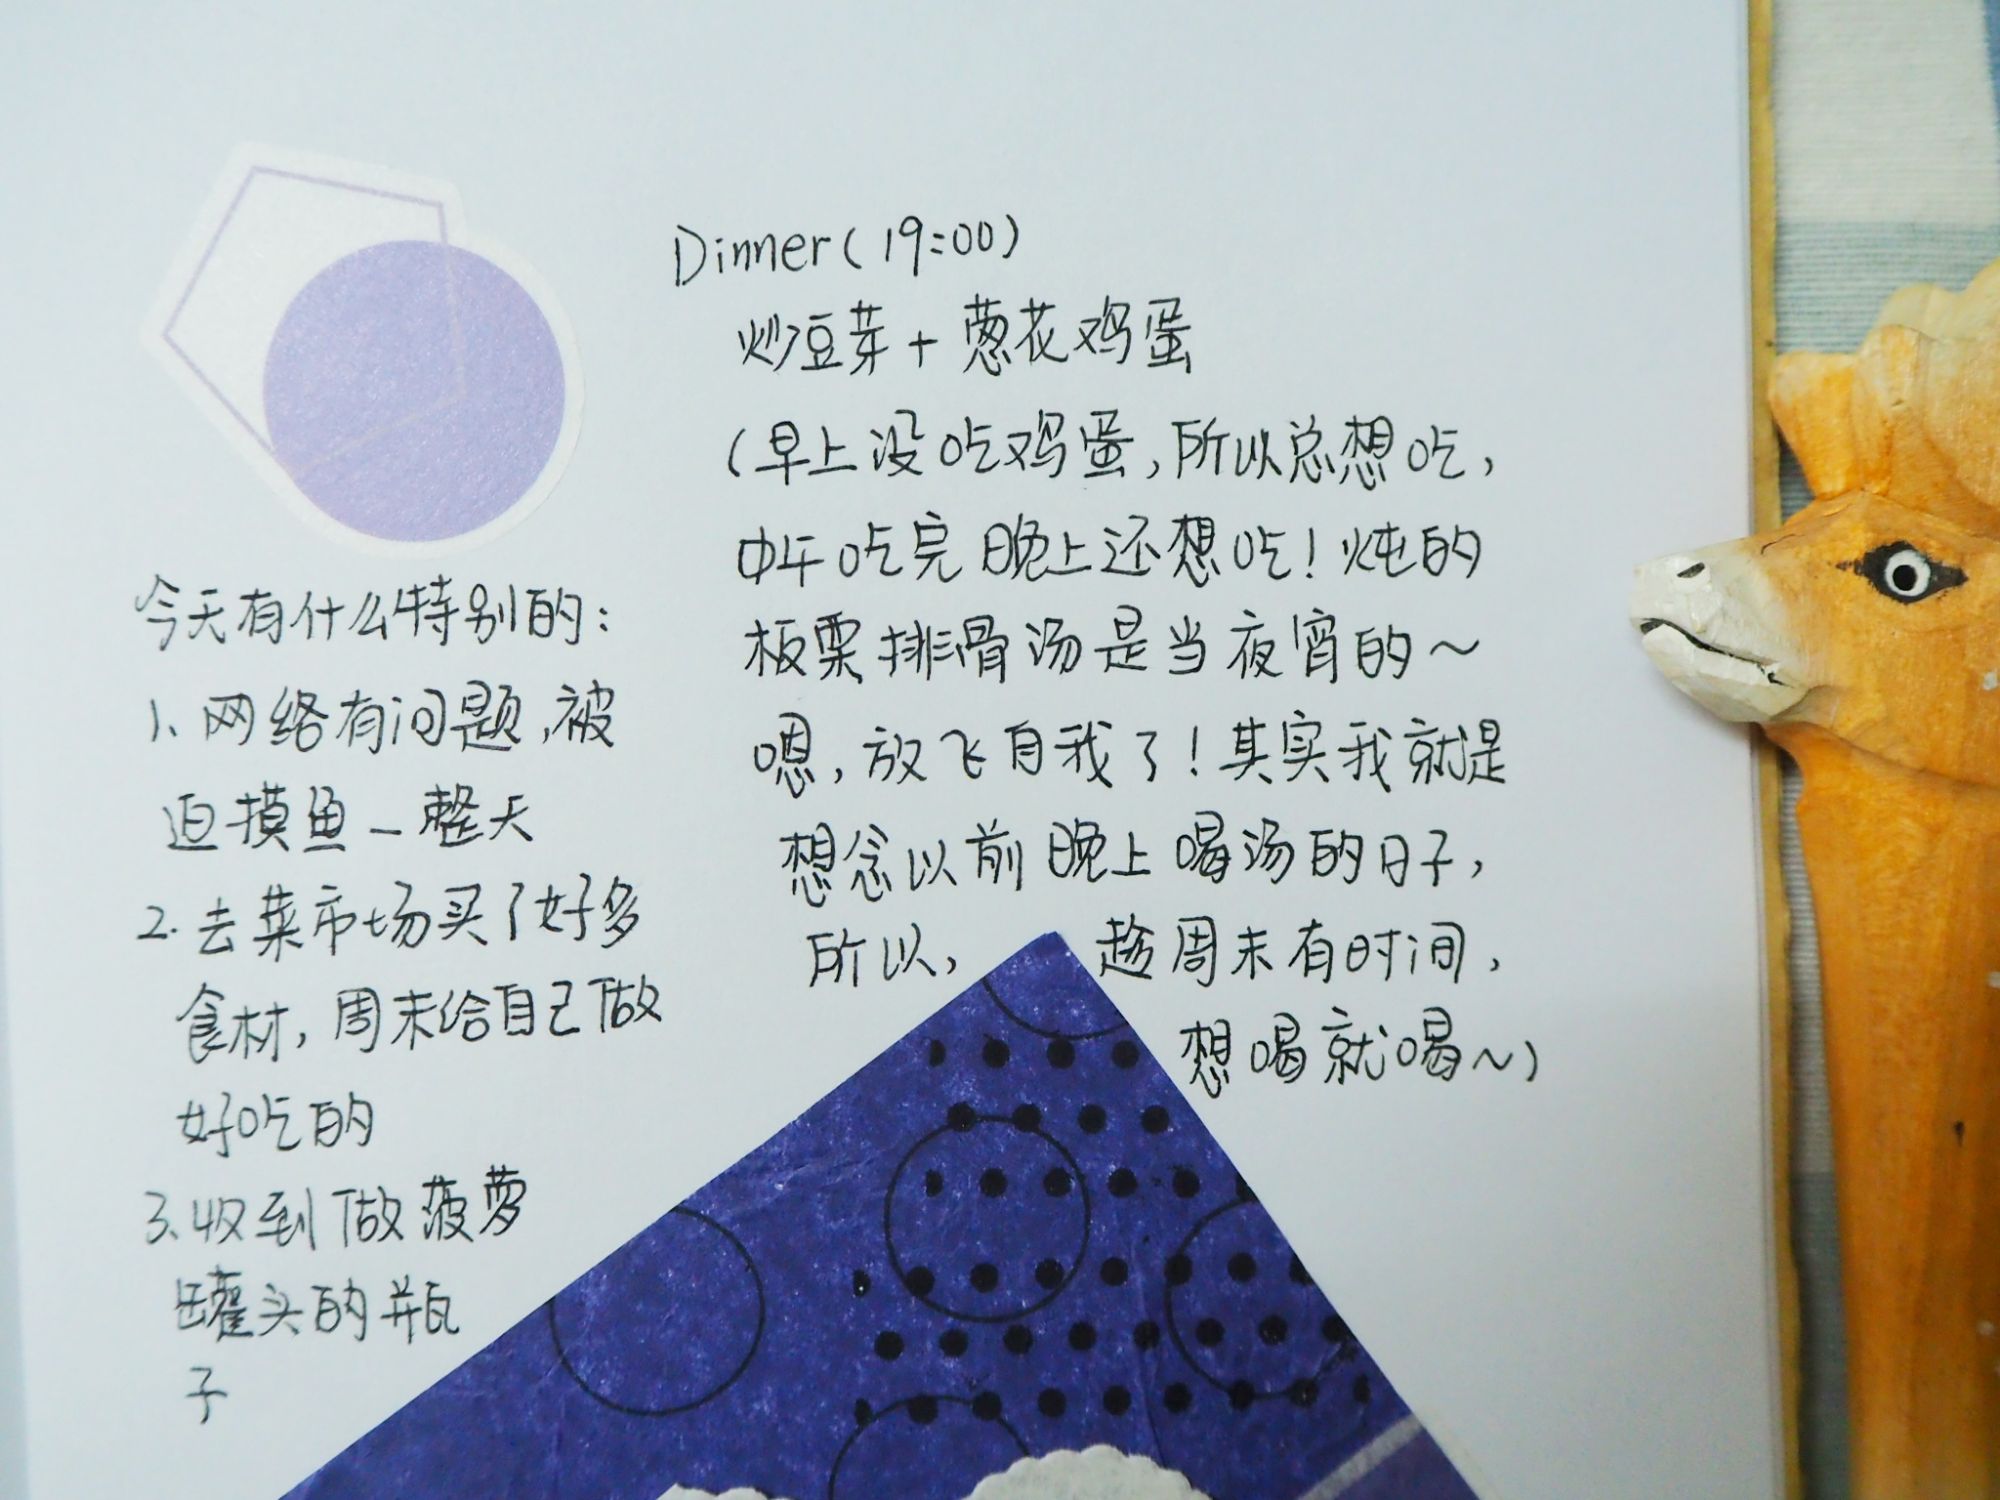 今天有什么特别的:
1.网络有问题,被
迫摸鱼一整天
2.去菜市场买了好多
食材,周末给自己做
好吃的
3.收到做菠萝
罐头的瓶
子
Dinner(19:00)
炒豆芽+葱花鸡蛋
(早上没吃鸡蛋,所以总想吃,
中午吃完晚上还想吃!炖的
板栗排骨汤是当夜宵的~
嗯,放飞自我了!其实我就是
想念以前晚上喝汤的日子,
所以,趁周末有时间,
想喝就喝~)